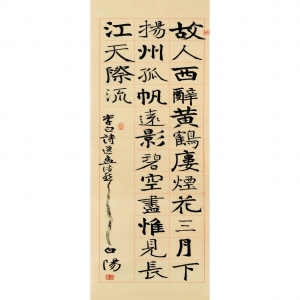 故人西辭黃鶴廔煙花三月下
揚州孤帆遠影碧空盡惟見長
江天際流
李白詩
白陽